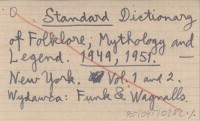 Standard Dictionary
of Folklore, Mythology and
Legend. 1949, 1951. —
New York. Vol. 1 and 2.
Wydawca: Funk & Wagnalls.